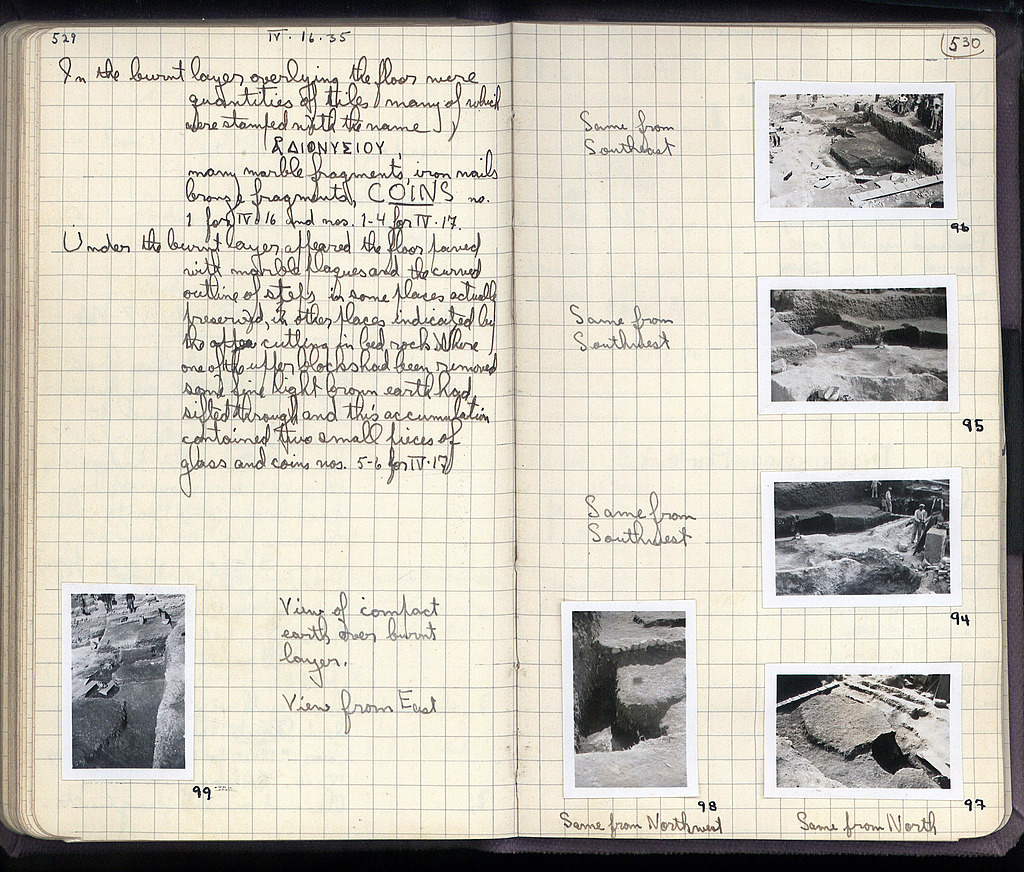 529
IV·16·35
In the burnt layer overlying the floor were
quantities of tiles (many of which
were stamped with the name
ΔΙΟΝΥΣΙΟΥ,
many marble fragments, iron nails
bronze fragments, COINS no.
1 for IV·16 and nos. 1-4 for IV·17.
Under the burnt layer appeared the floor paved
with marble plaques and the curved
outline of steps in some places actually
preserved, in other places indicated by
the cutting in bed rock. Where
one of the upper blocks had been removed
some fine light brown earth had
sifted through and this accumulation
contained two small pieces of
glass and coins nos. 5-6 for IV·17
View of compact
earth over burnt
layer.
View from East
99
530
Same from
Southeast
96
Same from
Southwest
95
Same from
Southwest
94
98
Same from Northwest
97
Same from North